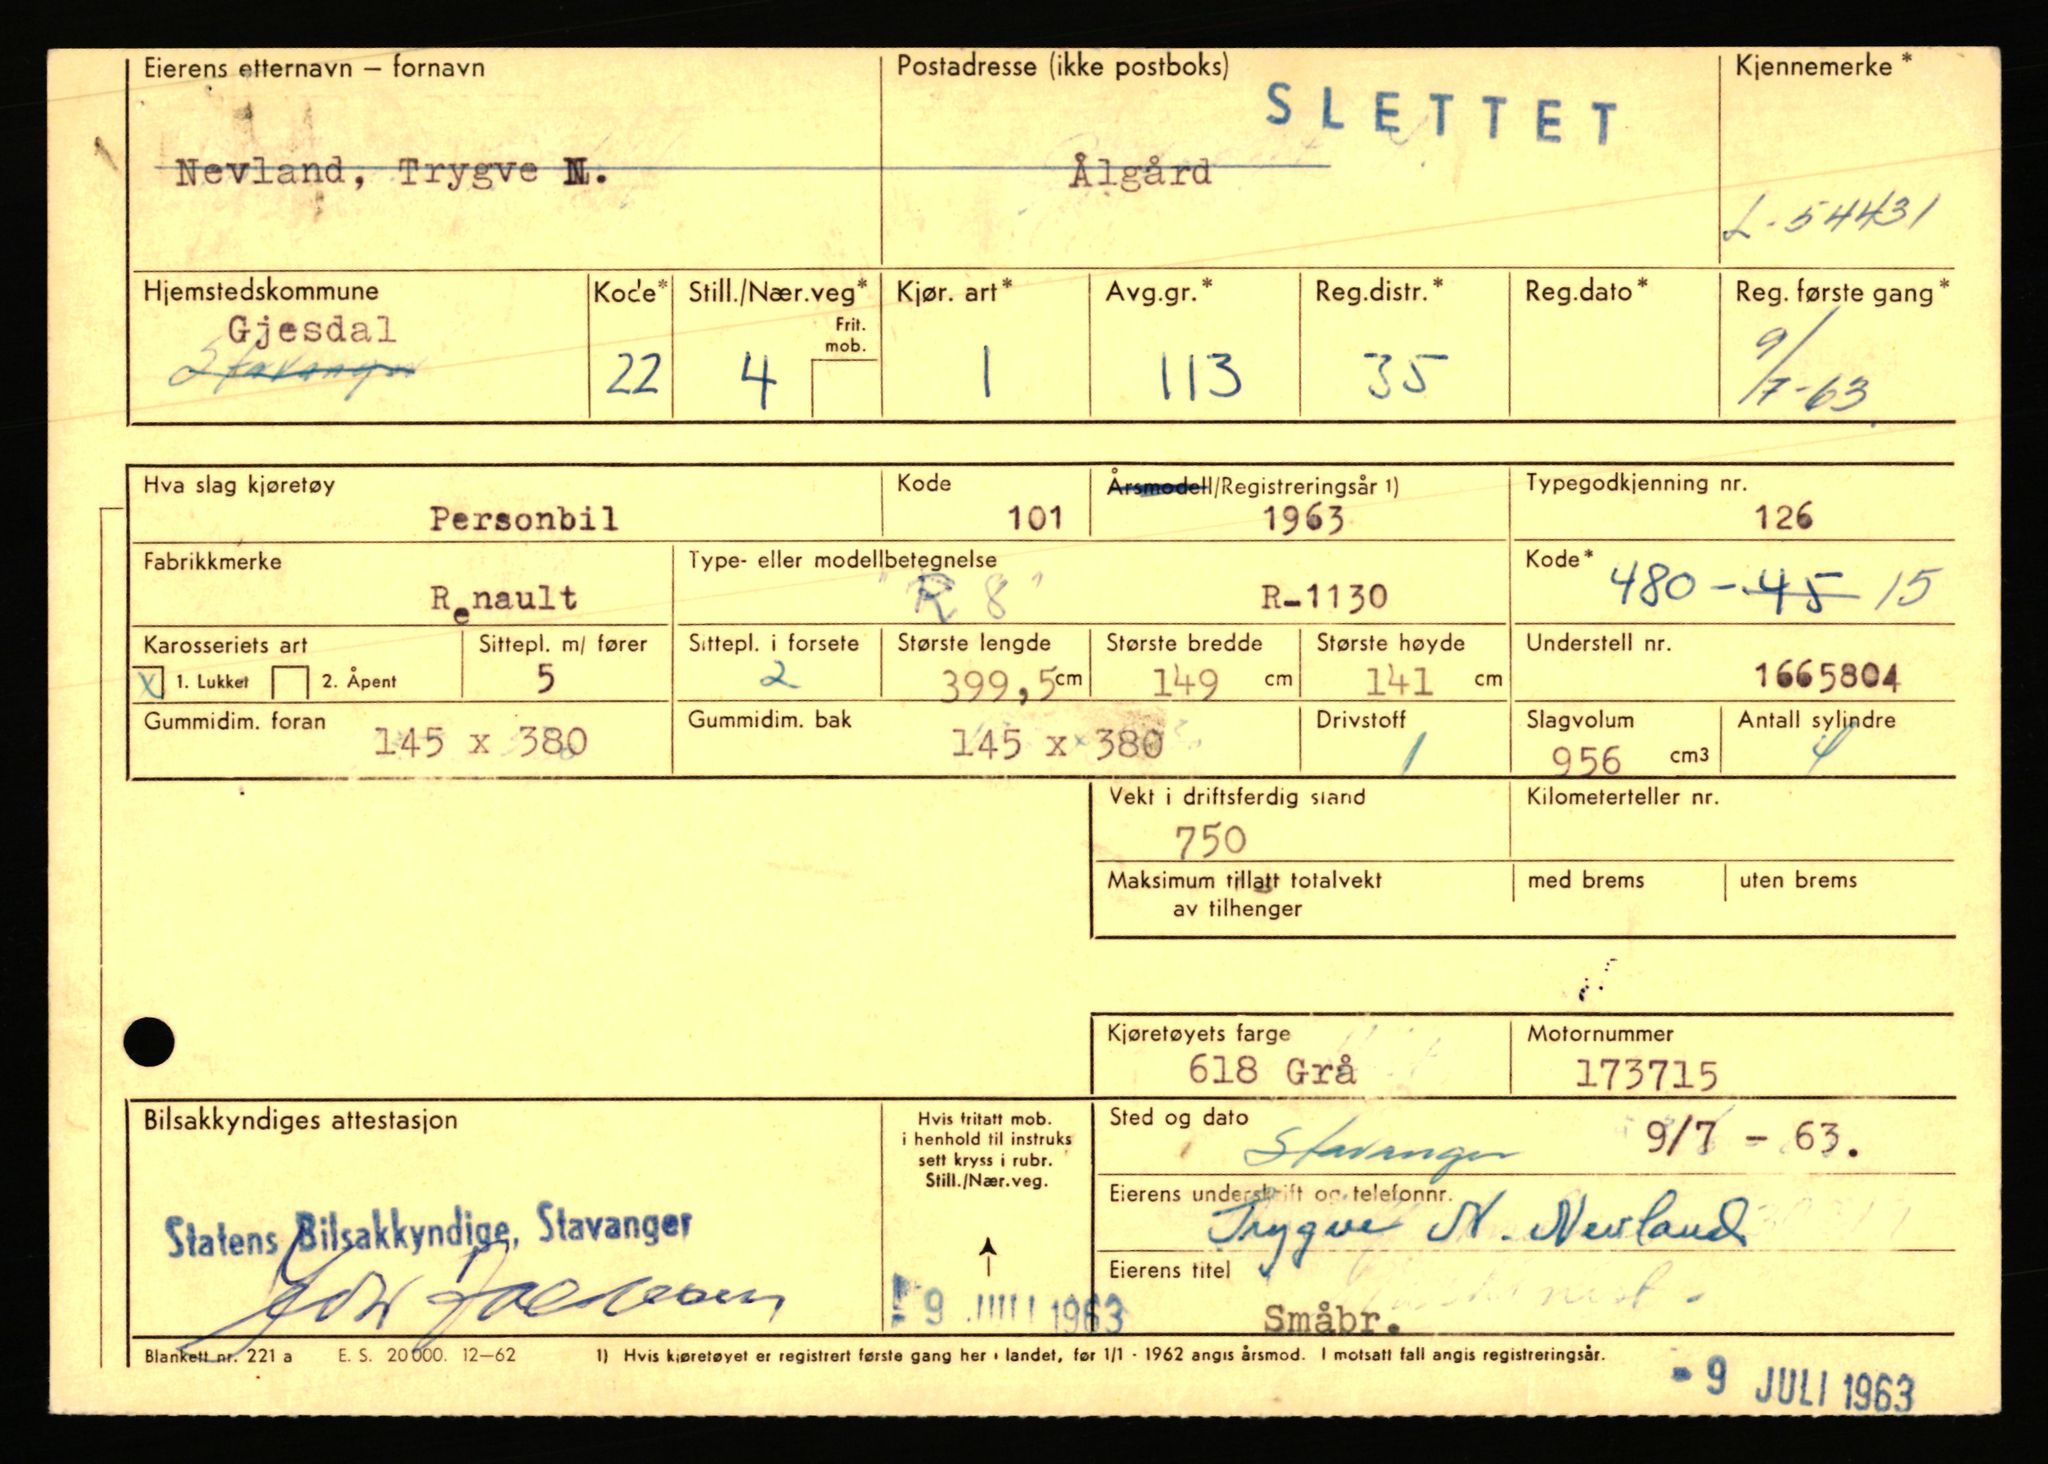 Eierens etternavn – fornavn Postadresse (ikke postboks) Kjennemerke*
SLETTET
Nevland, Trygve N. Ålgård
L-54431
Hjemstedskommune Kode* Still./Nær.veg* Kjør. art* Avg.gr.* Reg.distr.* Reg.dato* Reg. første gang*
Gjesdal Frit. mob.
Stavanger 22 4 1 113 35 9/7-63
Hva slag kjøretøy Kode Årsmodell/Registreringsår 1) Typegodkjenning nr.
Personbil 101 1963 126
Fabrikkmerke Type- eller modellbetegnelse Kode*
Renault "R 8" R-1130 480-45 15
Karosseriets art Sittepl. m/ fører Sittepl. i forsete Største lengde Største bredde Største høyde Understell nr.
x 1. Lukket 2. Åpent 5 2 399,5 cm 149 cm 141 cm 1665804
Gummidim. foran Gummidim. bak Drivstoff Slagvolum Antall sylindre
145 x 380 145 x 380 1 956 cm3 4
Vekt i driftsferdig stand Kilometerteller nr.
750
Maksimum tillatt totalvekt med brems uten brems
av tilhenger
Kjøretøyets farge Motornummer
618 Grå 173715
Bilsakkyndiges attestasjon
Hvis fritatt mob.
i henhold til instruks
sett kryss i rubr.
Still./Nær.veg.
Sted og dato
Stavanger 9/7 - 63.
Eierens underskrift og telefonnr.
Trygve N. Nevland
Statens Bilsakkyndige, Stavanger
Eierens titel
Småbr.
9 JULI 1963
Blankett nr. 221 a E. S. 20000. 12–62 1) Hvis kjøretøyet er registrert første gang her i landet, før 1/1 - 1962 angis årsmod. I motsatt fall angis registreringsår.
- 9 JULI 1963